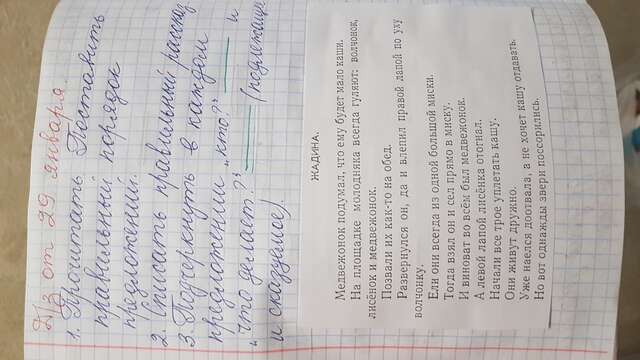 Д/з от 29 января
1. Прочитать Поставить
правильный порядок
предложений.
2. Списать правильный рассказ
3. Подчеркнуть в каждом
предложении „кто?" и
„что делает?" (подлежащее
и сказуемое).
ЖАДИНА.
Медвежонок подумал, что ему будет мало каши.
На площадке молодняка всегда гуляют: волчонок,
лисёнок и медвежонок.
Позвали их как-то на обед.
Развернулся он, да и влепил правой лапой по уху
волчонку.
Ели они всегда из одной большой миски.
Тогда взял он и сел прямо в миску.
И виноват во всём был медвежонок.
А левой лапой лисёнка отогнал.
Начали все трое уплетать кашу.
Они живут дружно.
Уже наелся доотвала, а не хочет кашу отдавать.
Но вот однажды звери поссорились.